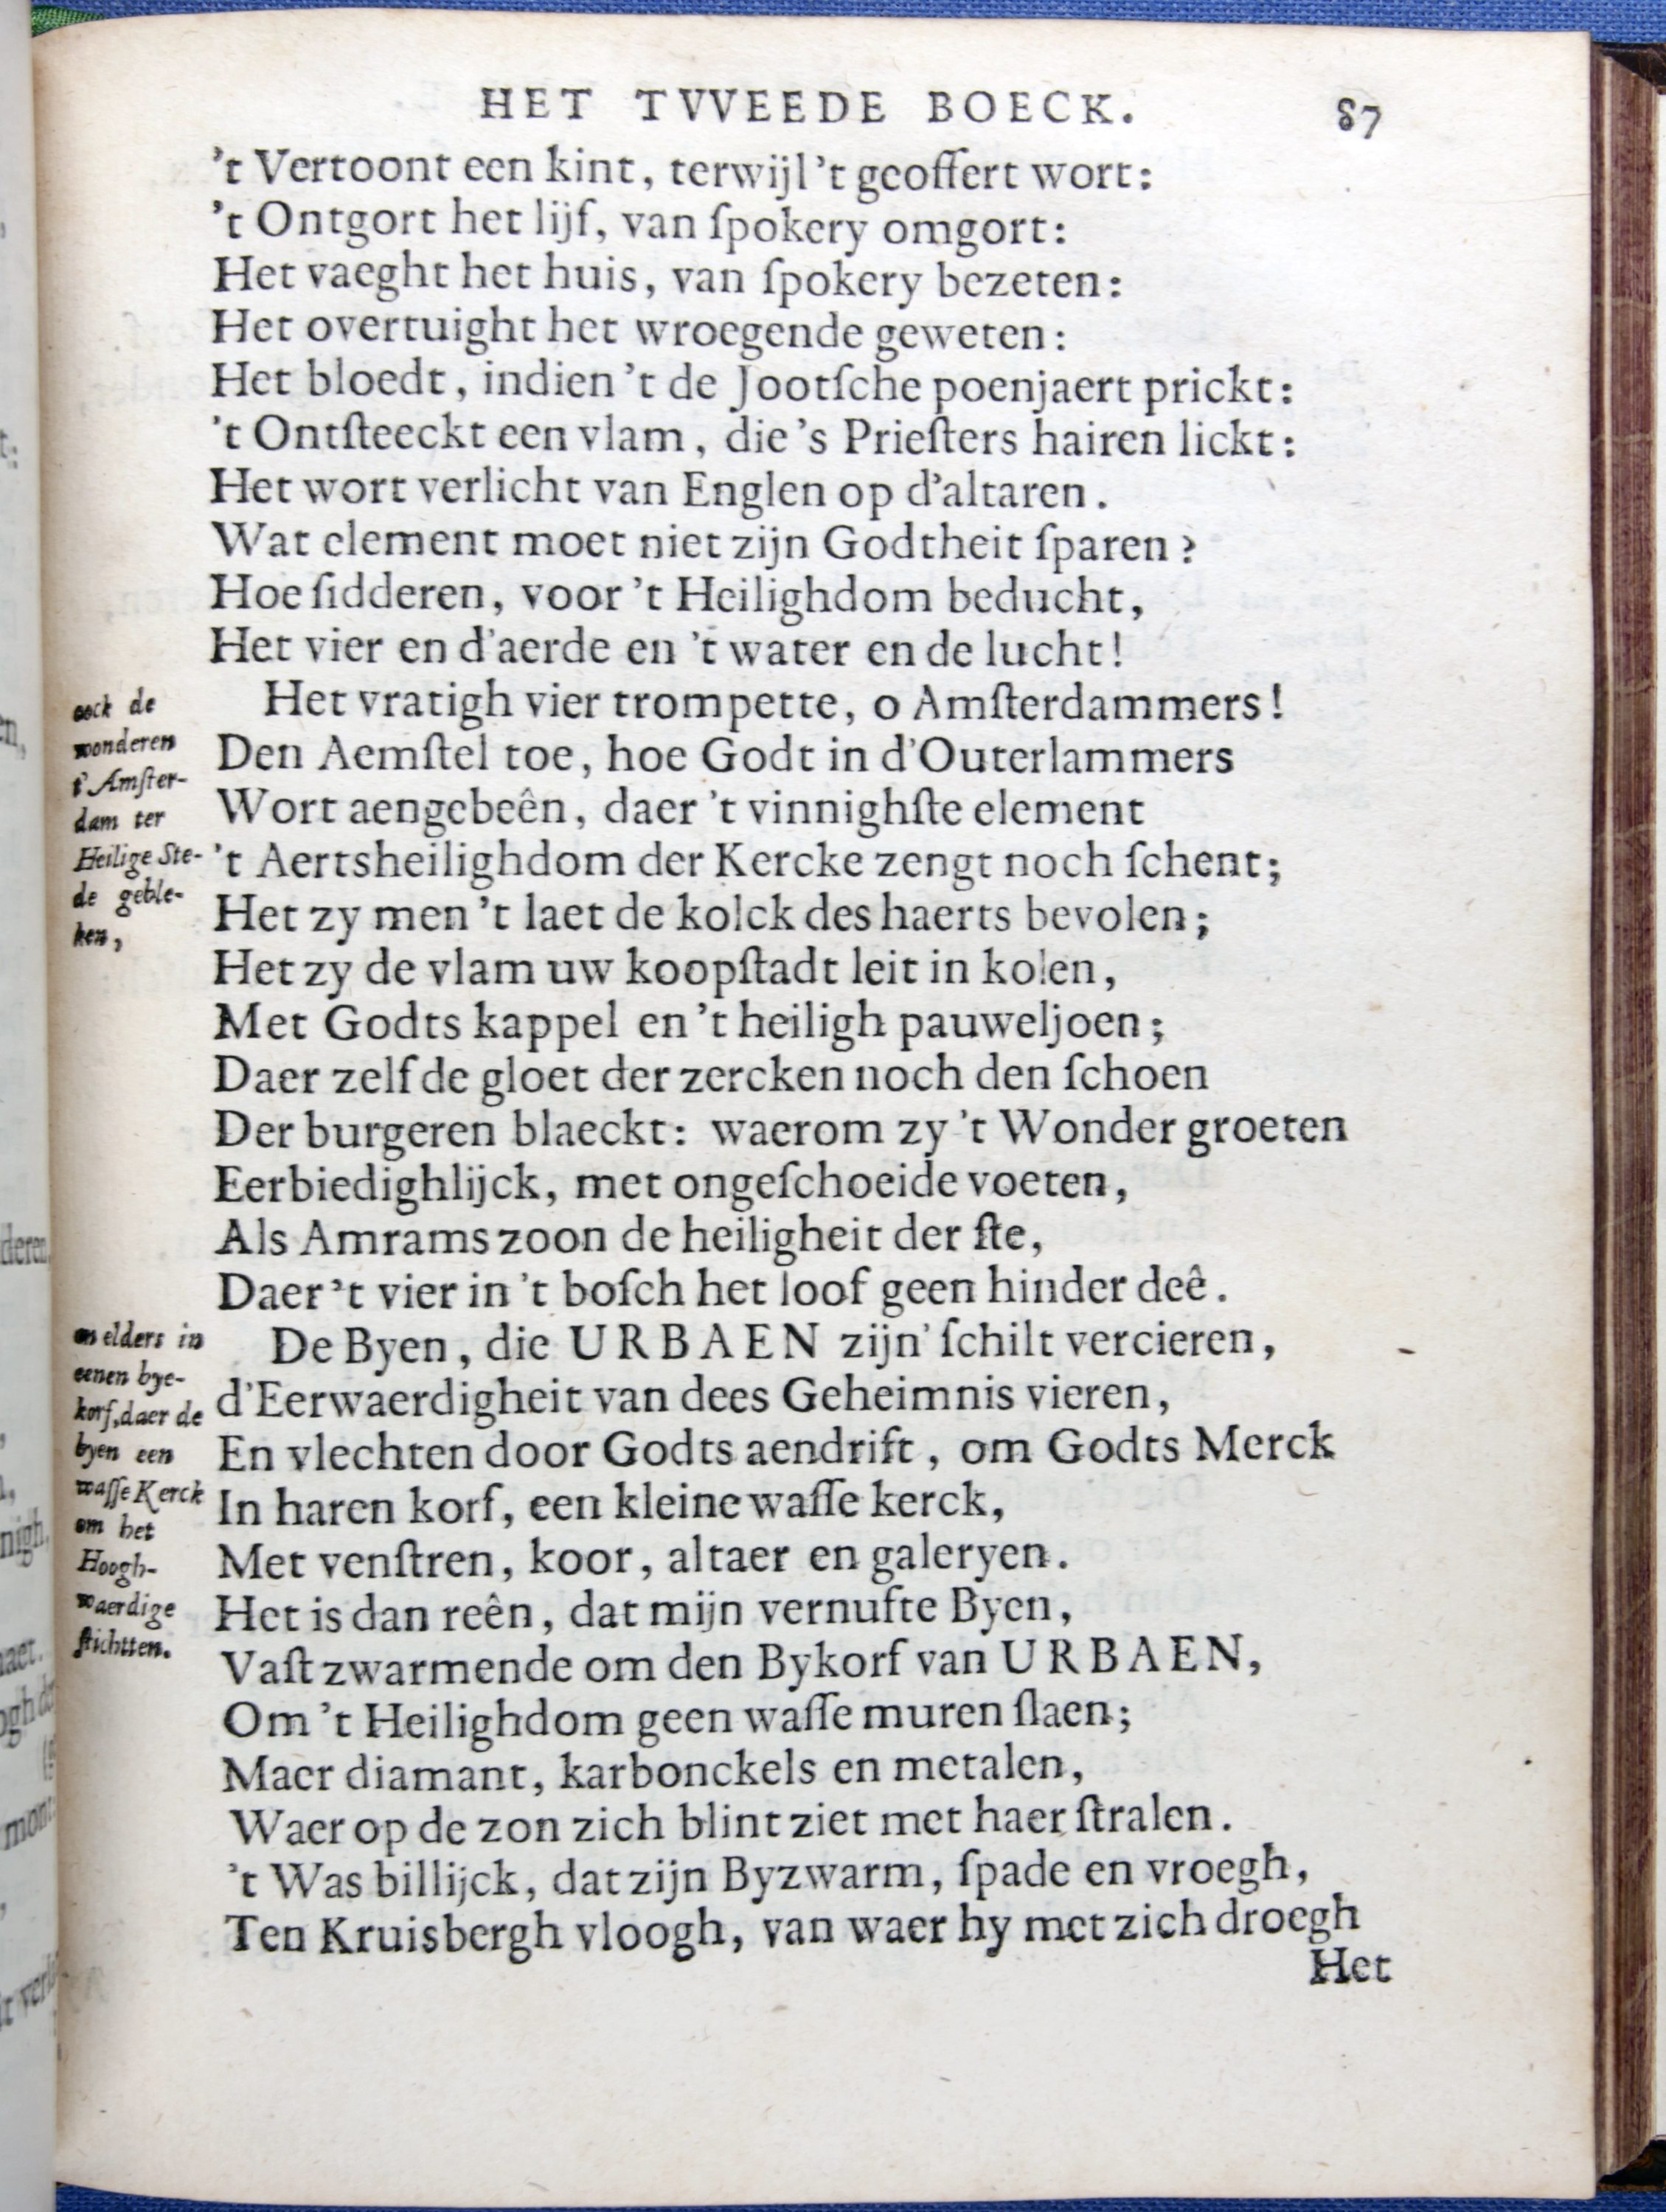 HET TVVEEDE BOECK. 87
't Vertoont een kint, terwijl 't geoffert wort:
't Ontgort het lijf, van ſpokery omgort:
Het vaeght het huis, van ſpokery bezeten:
Het overtuight het wroegende geweten:
Het bloedt, indien 't de Jootſche poenjaert prickt:
't Ontſteeckt een vlam, die 's Prieſters hairen lickt:
Het wort verlicht van Englen op d'altaren.
Wat element moet niet zijn Godtheit ſparen?
Hoe ſidderen, voor 't Heilighdom beducht,
Het vier en d'aerde en 't water en de lucht!
Het vratigh vier trompette, o Amſterdammers!
Den Aemſtel toe, hoe Godt in d'Outerlammers
Wort aengebeên, daer 't vinnighſte element
't Aertsheilighdom der Kercke zengt noch ſchent;
Het zy men 't laet de kolck des haerts bevolen;
Het zy de vlam uw koopſtadt leit in kolen,
Met Godts kappel en 't heiligh pauweljoen;
Daer zelf de gloet der zercken noch den ſchoen
Der burgeren blaeckt: waerom zy 't Wonder groeten
Eerbiedighlijck, met ongeſchoeide voeten,
Als Amrams zoon de heiligheit der ſte,
Daer 't vier in 't boſch het loof geen hinder deê.
De Byen, die URBAEN zijn' ſchilt vercieren,
d'Eerwaerdigheit van dees Geheimnis vieren,
En vlechten door Godts aendrift, om Godts Merck
In haren korf, een kleine waſſe kerck,
Met venſtren, koor, altaer en galeryen.
Het is dan reên, dat mijn vernufte Byen,
Vaſt zwarmende om den Bykorf van URBAEN,
Om 't Heilighdom geen waſſe muren ſlaen;
Maer diamant, karbonckels en metalen,
Waer op de zon zich blint ziet met haer ſtralen.
't Was billijck, dat zijn Byzwarm, ſpade en vroegh,
Ten Kruisbergh vloogh, van waer hy met zich droegh
Het
oock de
wonderen
t'Amſter-
dam ter
Heilige Ste-
de geble-
ken,
en elders in
eenen bye-
korf, daer de
byen een
waſſe Kerck
om het
Hoogh-
waerdige
ſtichtten.